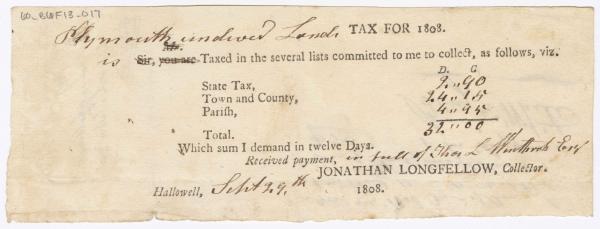 60_BWF13_017
Plymouth undived Lands TAX FOR 1808.
Mr.
is Sir, you are Taxed in the several lists committed to me to collect, as follows, viz.
D. C.
State Tax, 2..90
Town and County, 24..15
Parish, 4..95
Total. 32..00
Which sum I demand in twelve Days.
Received payment, in full of Thos L Winthrob Esq
JONATHAN LONGFELLOW, Collector.
Hallowell, Sept 29.th 1808.